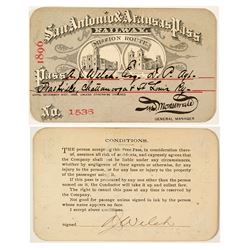 1896
San Antonio & Aransas Pass
RAILWAY.
MISSION ROUTE
Pass
Welsh
Nashville, Chattanooga & St Louis Ry
UNTIL DECEMBER 31ST, 1896 UNLESS OTHERWISE ORDERED
No. 1536
GENERAL MANAGER
CONDITIONS.
THE person accepting this Free Pass, in consideration
thereof, assumes all risk of accidents, and expressly agrees that
the Company shall not be liable under any circumstances,
whether by negligence of their agents or otherwise, for any
injury to the person, or for any loss or injury to the property
of the passenger using the
If this pass is presented by any one other than the person
named on it, the Conductor will take it up and collect fare.
Not good for passage unless signed in ink by the person
whose name appears on face.
I accept above conditions.
Signed Welsh